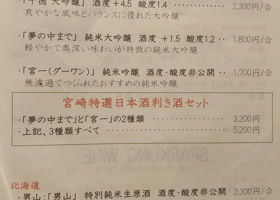 「千徳」大吟醸　酒度 +4.5 酸度1.4 ---- 2,300円/合
爽やかな風味とバランスに優れた大吟醸
・「夢の中まで」純米大吟醸　酒度 +1.5 酸度1.2 -- 1,800円/合
軽やかで奥深い味わいが特徴の純米大吟醸
・「宮一(グーワン)」純米吟醸　酒度・酸度非公開 -- 1,700円/合
無濾過でつくられたおすすめの純米吟醸
宮崎特選日本酒利き酒セット
・「夢の中まで」と「宮一」の2種類 -------- 3,200円
・上記、3種類すべて -------- 5,200円
北海道
・男山:「男山」特別純米生原酒　酒度・酸度非公開 -- 2,300円/合